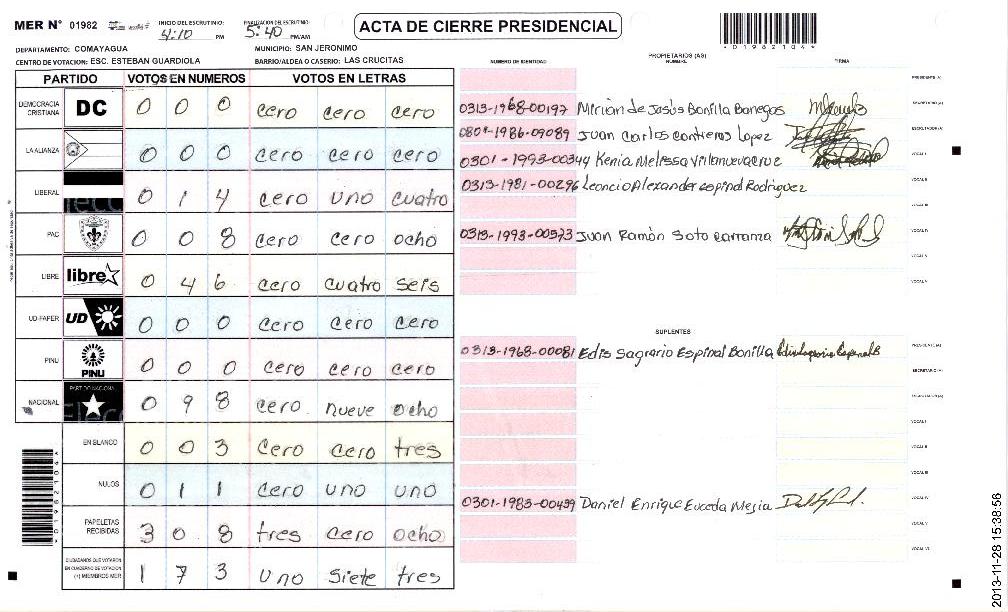 MER N° 01982
INICIO DEL ESCRUTINIO:
4:10 PM
FINALIZACION DEL ESCRUTINIO:
5:40 PM/AM
ACTA DE CIERRE PRESIDENCIAL
*01982104*
DEPARTAMENTO: COMAYAGUA
MUNICIPIO: SAN JERONIMO
CENTRO DE VOTACION: ESC. ESTEBAN GUARDIOLA
BARRIO/ALDEA O CASERIO: LAS CRUCITAS
PARTIDO VOTOS EN NUMEROS VOTOS EN LETRAS
DEMOCRACIA CRISTIANA DC 0 0 0 cero cero cero
LA ALIANZA 0 0 0 cero cero cero
LIBERAL 0 1 4 cero uno cuatro
PAC 0 0 8 cero cero ocho
LIBRE libre 0 4 6 cero cuatro seis
UD-FAPER UD 0 0 0 cero cero cero
PINU PINU 0 0 0 cero cero cero
NACIONAL PARTIDO NACIONAL 0 9 8 cero nueve ocho
EN BLANCO 0 0 3 cero cero tres
NULOS 0 1 1 cero uno uno
PAPELETAS RECIBIDAS 3 0 8 tres cero ocho
CIUDADANOS QUE VOTARON EN CUADERNO DE VOTACION (+) MIEMBROS MER 1 7 3 uno siete tres
*01982104*
NUMERO DE IDENTIDAD
PROPIETARIOS (AS)
NOMBRE
FIRMA
PRESIDENTE (A)
0313-1968-00197 Mirian de Jesús Bonilla Banegas SECRETARIO (A)
0801-1986-09089 Juan Carlos Contreros Lopez ESCRUTADOR (A)
0301-1993-00344 Kenia Melissa Villanueva Cruz VOCAL I
0313-1981-00296 Leoncio Alexander Espinal Rodriguez VOCAL II
VOCAL III
0313-1993-00573 Juan Ramón Soto Carranza VOCAL IV
VOCAL V
VOCAL VI
SUPLENTES
0313-1968-00081 Edis Sagrario Espinal Bonilla PRESIDENTE (A)
SECRETARIO (A)
ESCRUTADOR (A)
VOCAL I
VOCAL II
VOCAL III
0301-1983-00439 Daniel Enrique Euceda Mejia VOCAL IV
VOCAL V
VOCAL VI
2013-11-28 15:38:56